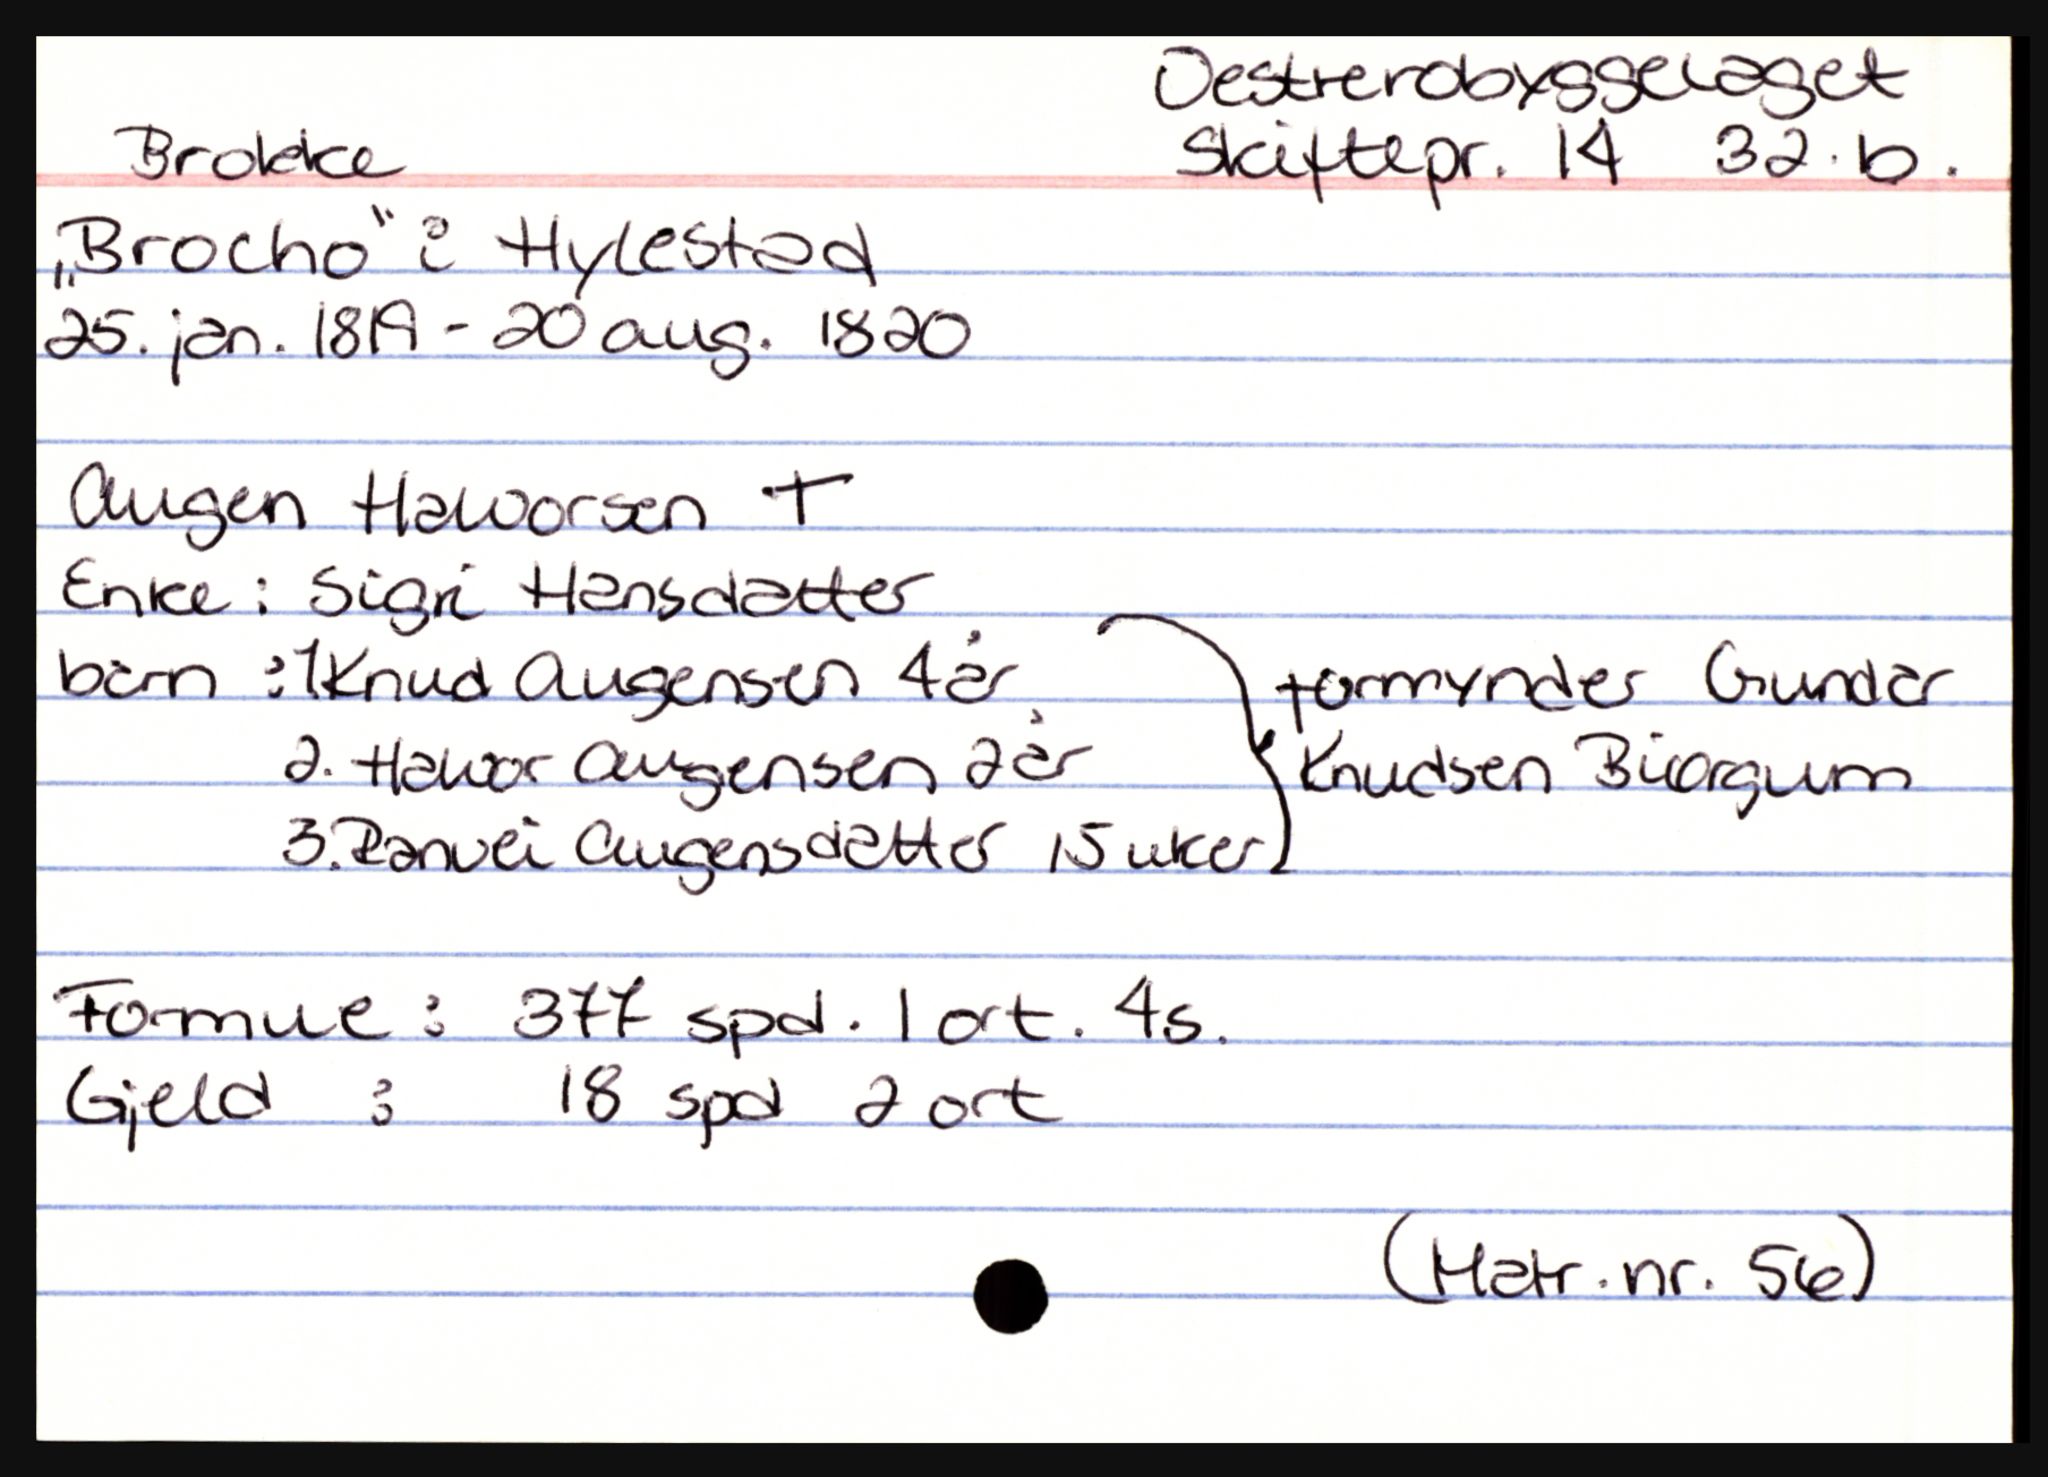 Oestrerobyggelaget
Brokke Skiftepr. 14 32.b.
„Brocho“ i Hylestad
25. jan. 1819 - 20 aug. 1820
Augen Halvorsen †
Enke : Sigri Hansdatter
barn : 1 Knud Augensen 4 år
formynder Gundar
2. Halvor Augensen 2 år
Knudsen Biorgum
3. Ranvei Augensdatter 15 uker
Formue : 377 spd. 1 ort. 4s.
Gjeld : 18 spd 2 ort
(Matr. nr. 56)